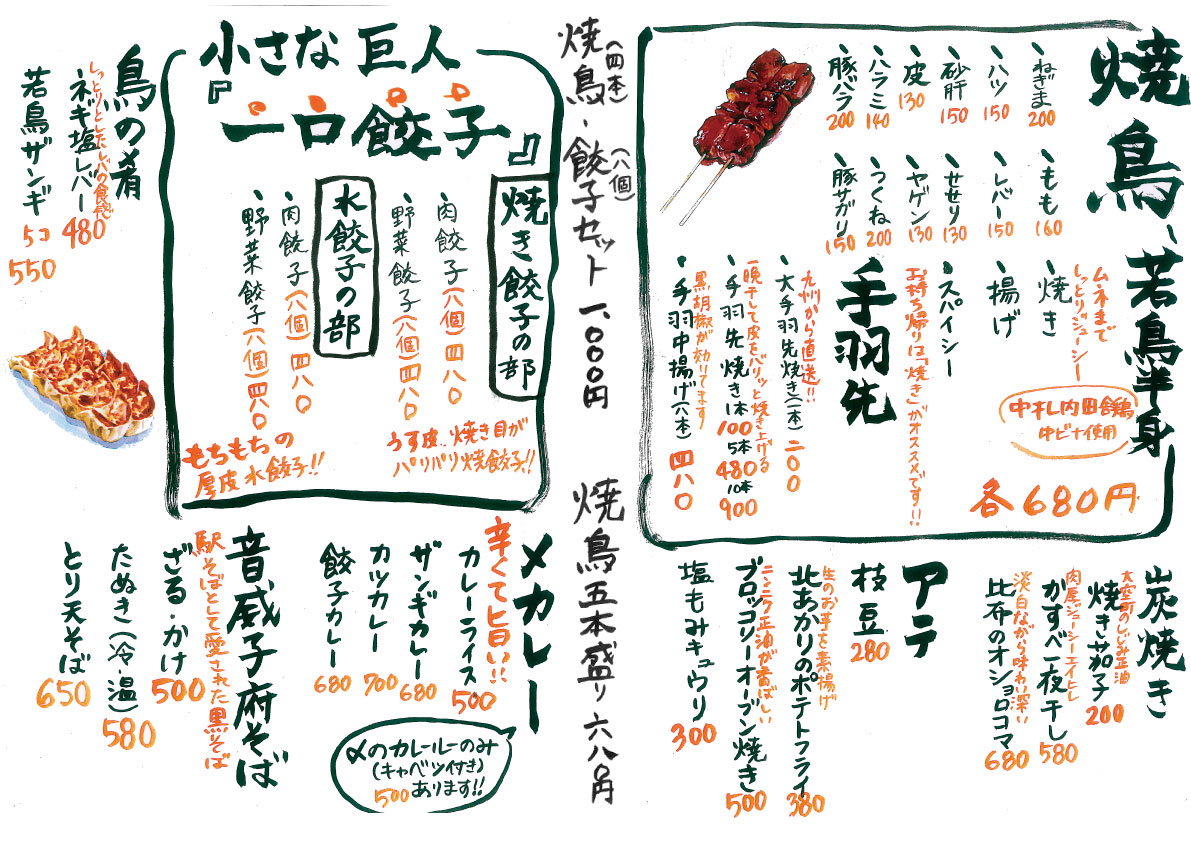 焼鳥、若鳥半身
ねぎま 200
ハツ 150
砂肝 150
皮 130
ハラミ 140
豚バラ 200
もも 160
レバー 150
せせり 130
ヤゲン 130
つくね 200
豚サガリ 150
ムネまで
しっとりジューシー
焼き
揚げ
スパイシー
お持ち帰りは「焼き」がオススメです!!
中札内田舎鶏
中ビナ使用
各680円
手羽先
九州から直送!!
大手羽先焼き(一本) 二〇〇
一晩干して皮をパリッと焼き上げる
手羽先焼き 1本100 5本480 10本900
黒胡椒が効いてます
手羽中揚げ(六本) 四八〇
炭焼き
焼き茄子 200
肉厚ジューシーエイヒレ
かすべ一夜干し 580
淡白ながら味わい深い
比布のオショロコマ 680
アテ
枝豆 280
生のお芋を素揚げ
北あかりのポテトフライ 380
ニンニク正油が香ばしい
ブロッコリーオーブン焼き 500
塩もみキュウリ 300
焼鳥(四本)・餃子(八個)セット 一、〇〇〇円
焼鳥五本盛り 六八〇円
小さな巨人
『一口餃子』
焼き餃子の部
肉餃子(八個)四八〇
野菜餃子(八個)四八〇
うす皮…焼き目が
パリパリ焼餃子!!
水餃子の部
肉餃子(八個)四八〇
野菜餃子(八個)四八〇
もちもちの
厚皮水餃子!!
鳥の肴
しっとりとしたレバの食感
ネギ塩レバー 480
若鳥ザンギ 5コ 550
〆カレー
辛くて旨い!!
カレーライス 500
ザンギカレー 680
カツカレー 700
餃子カレー 680
〆のカレールーのみ
(キャベツ付き)
500あります!!
音威子府そば
駅そばとして愛された黒そば
ざる・かけ 500
たぬき(冷・温) 580
とり天そば 650